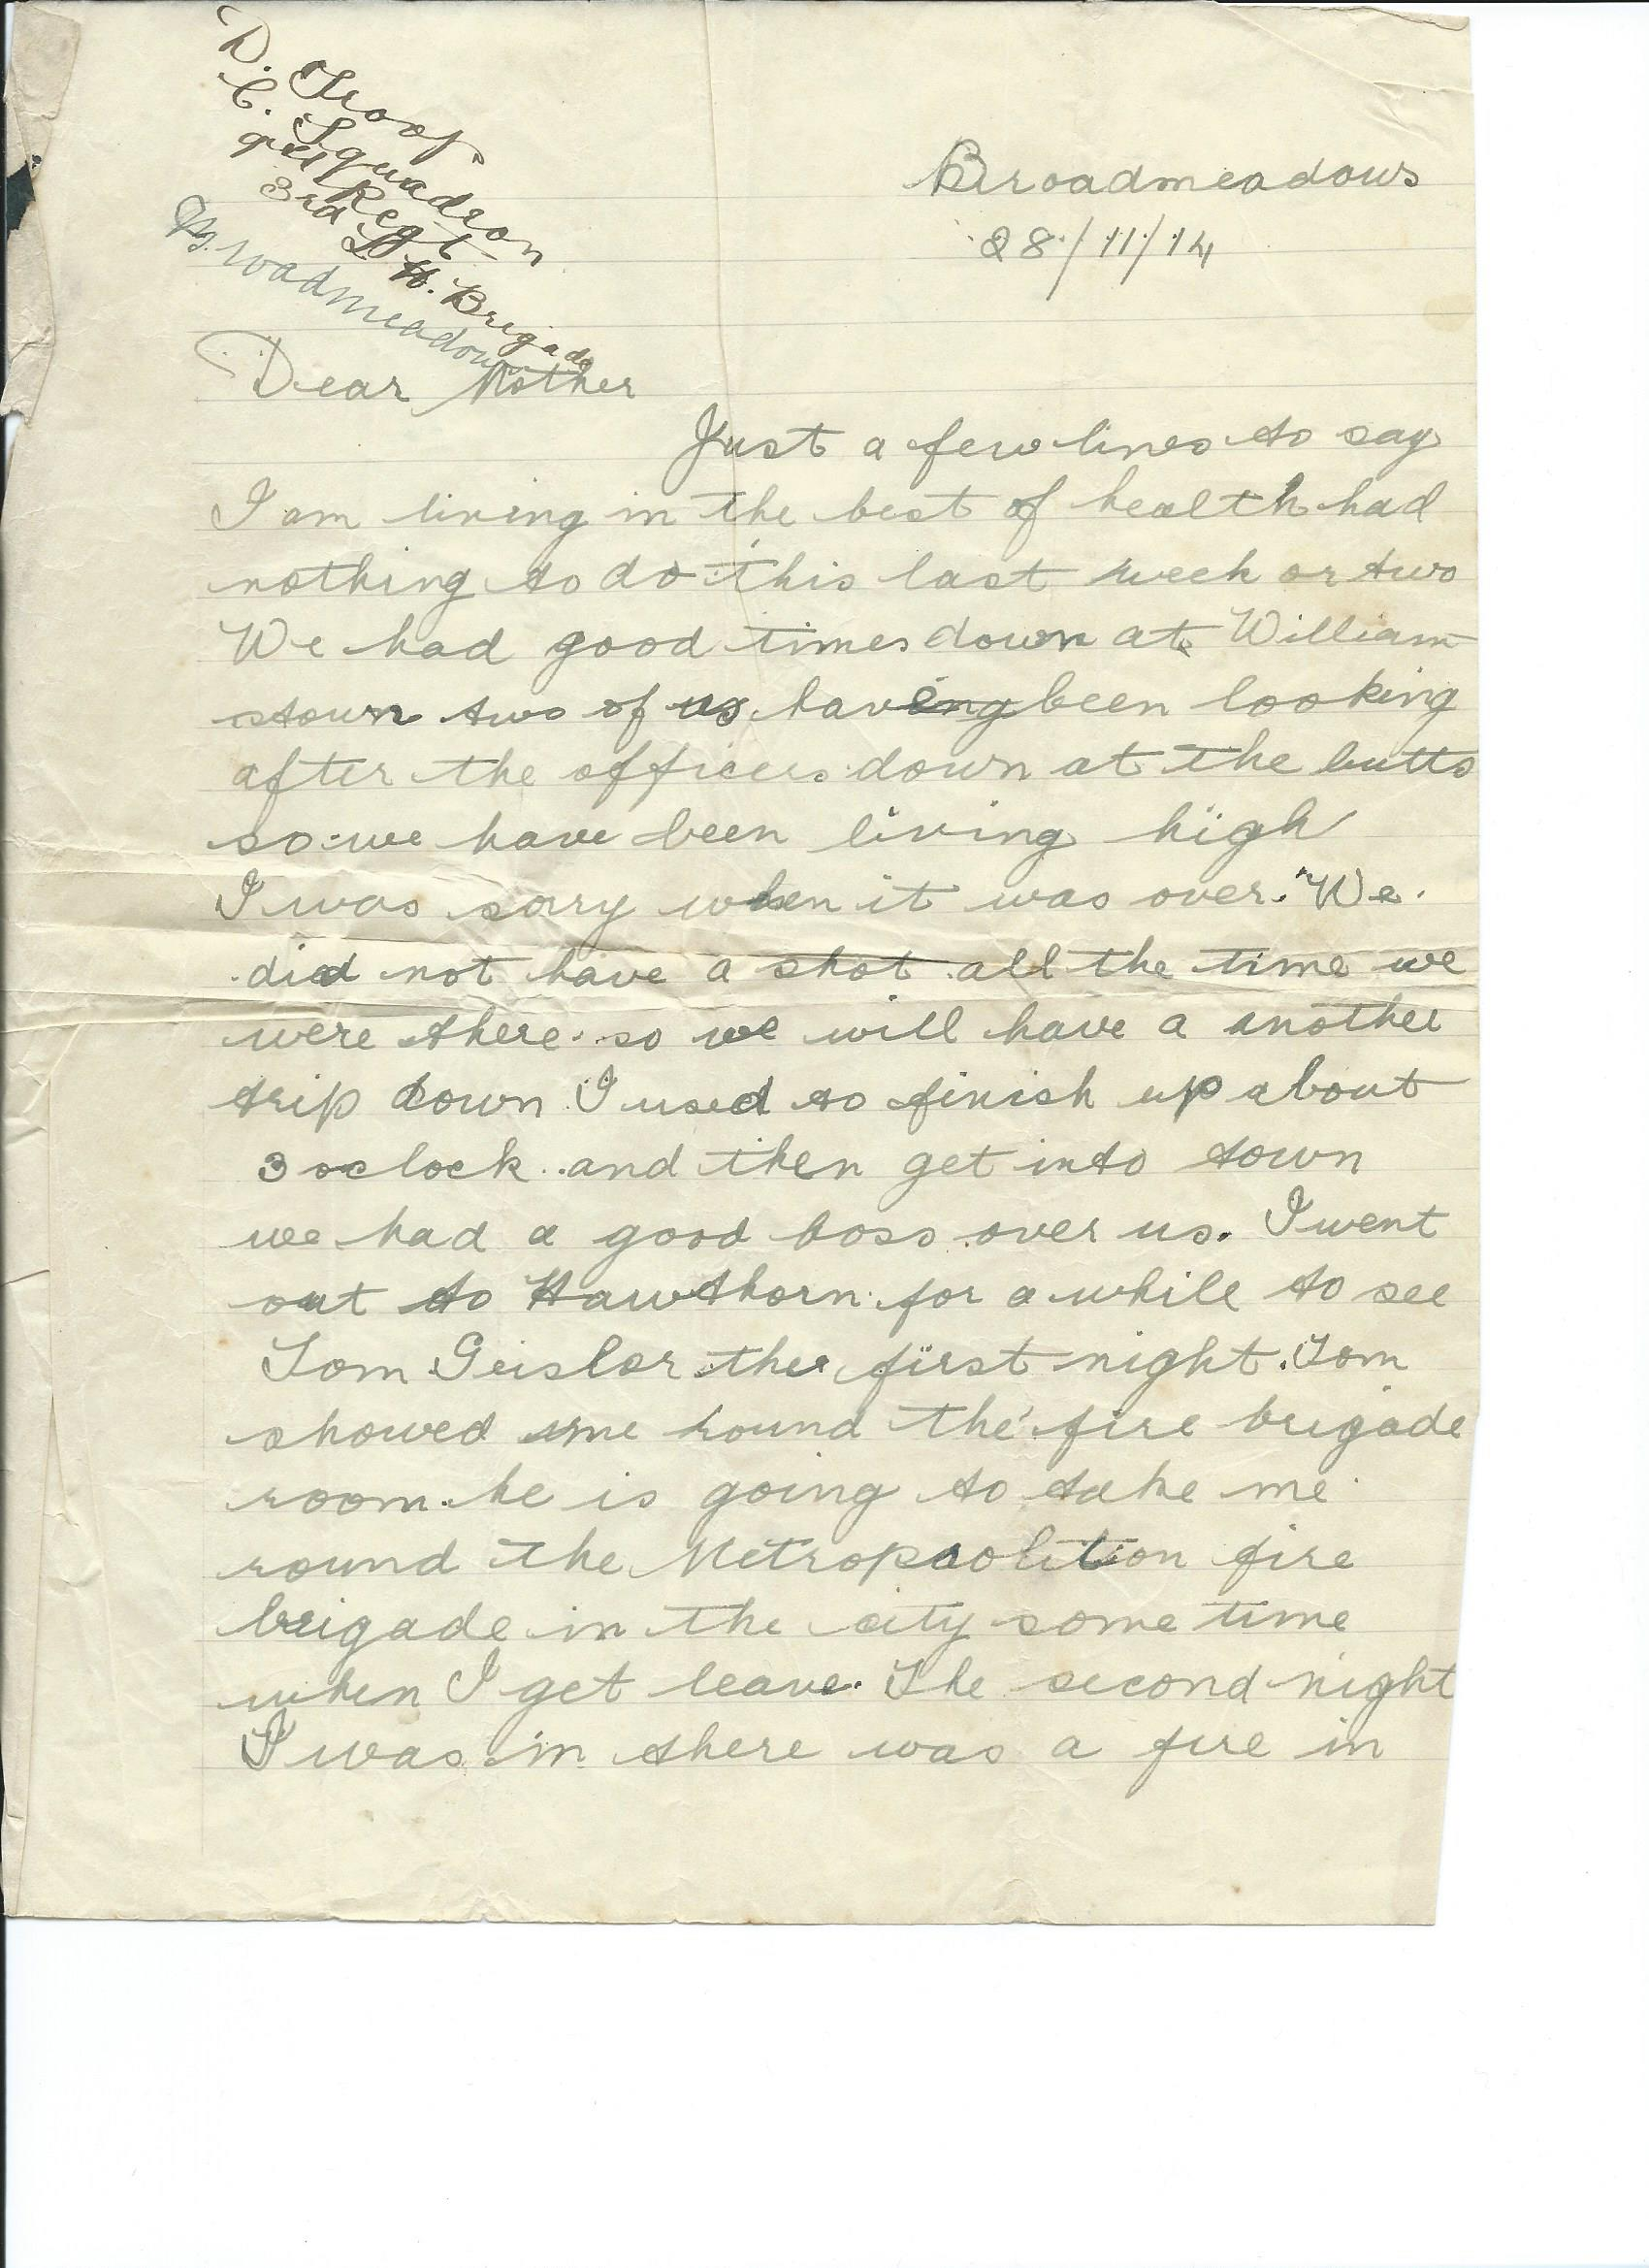 D. Troop
C. Squadron
9th Regt
3rd L. H. Brigade
Broadmeadows
Broadmeadows
28/11/14
Dear Mother
Just a few lines to say
I am living in the best of health had
nothing to do this last week or two
We had good times down at William
stown two of us having been looking
after the officers down at the butts
so we have been living high
I was sorry when it was over. We
did not have a shot all the time we
were there so we will have a another
trip down I used to finish up about
3 oclock and then get into town
we had a good boss over us. I went
out to Hawthorn for a while to see
Tom Geislor the first night. Tom
showed me round the fire brigade
room. he is going to take me
round the Metropaolition fire
brigade in the city some time
when I get leave. The second night
I was in there was a fire in